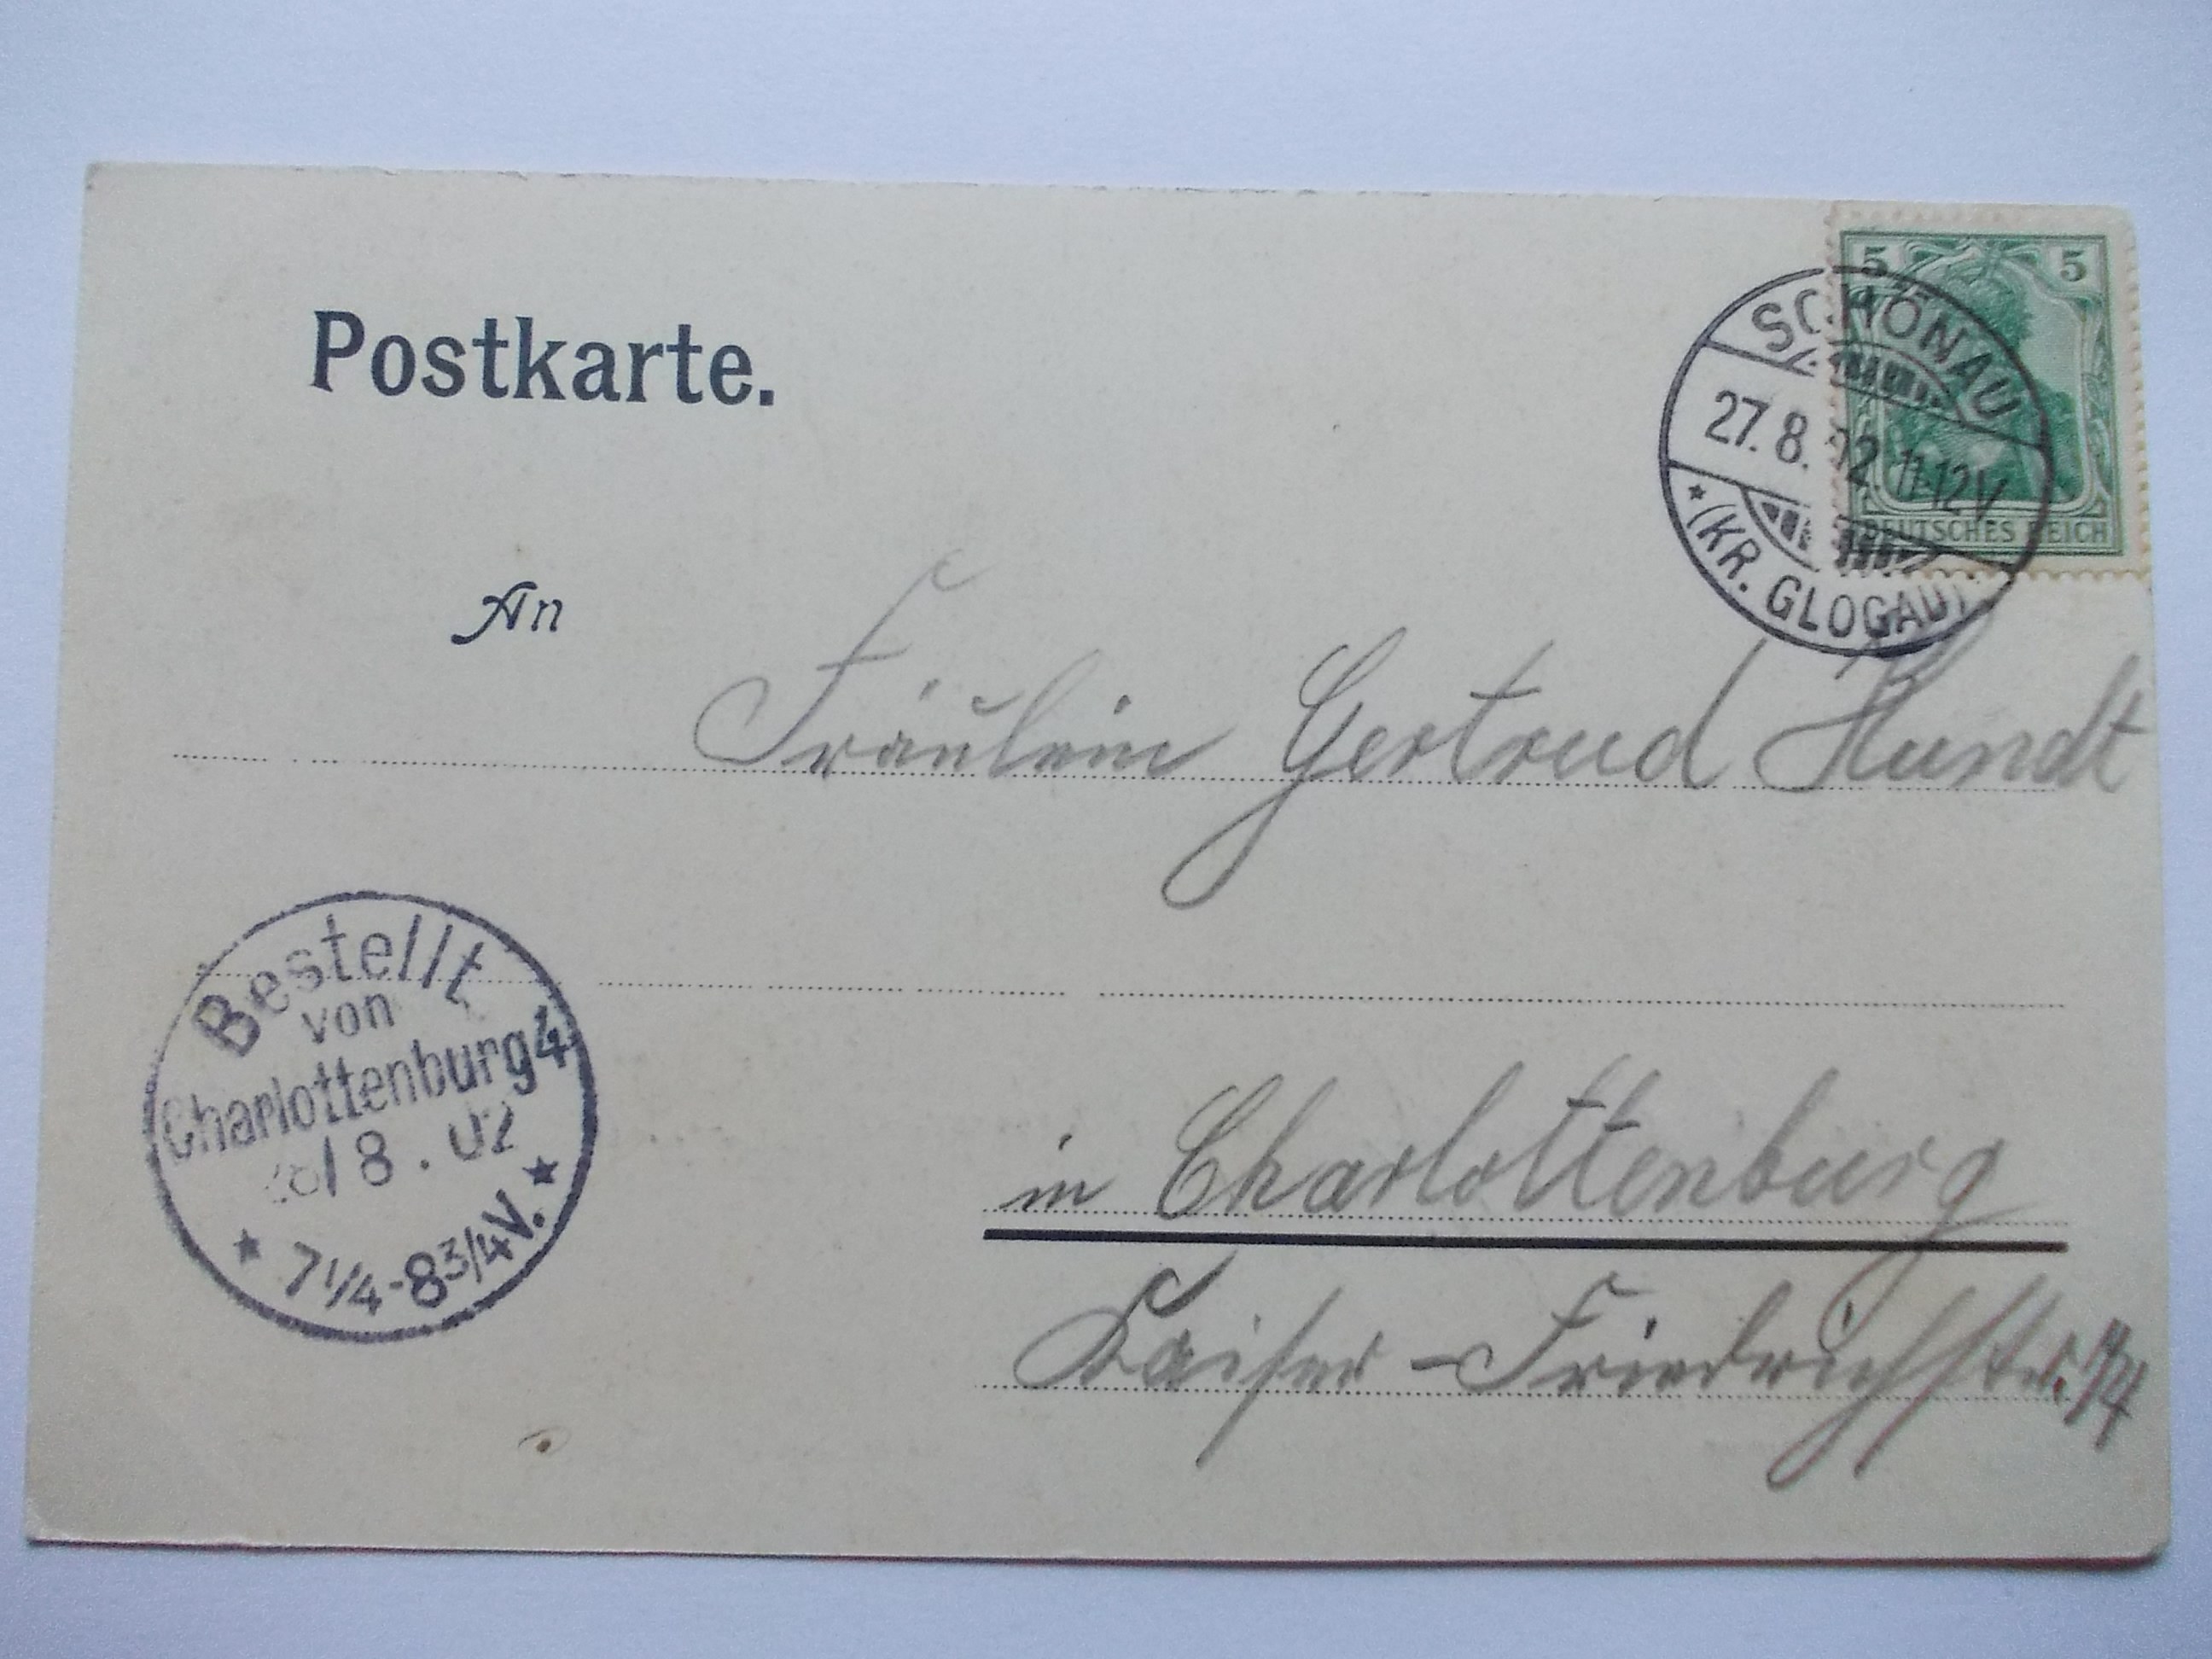 Postkarte.
5 5
DEUTSCHES REICH
SCHÖNAU
27. 8. 02. 11-12V
* (KR. GLOGAU)
An
Fräulein Gertrud Hundt
Bestellt
von
Charlottenburg 4
/ 8 . 02
* 7 1/4-8 3/4V. *
in Charlottenburg
Kaiser-Friedrichstr.